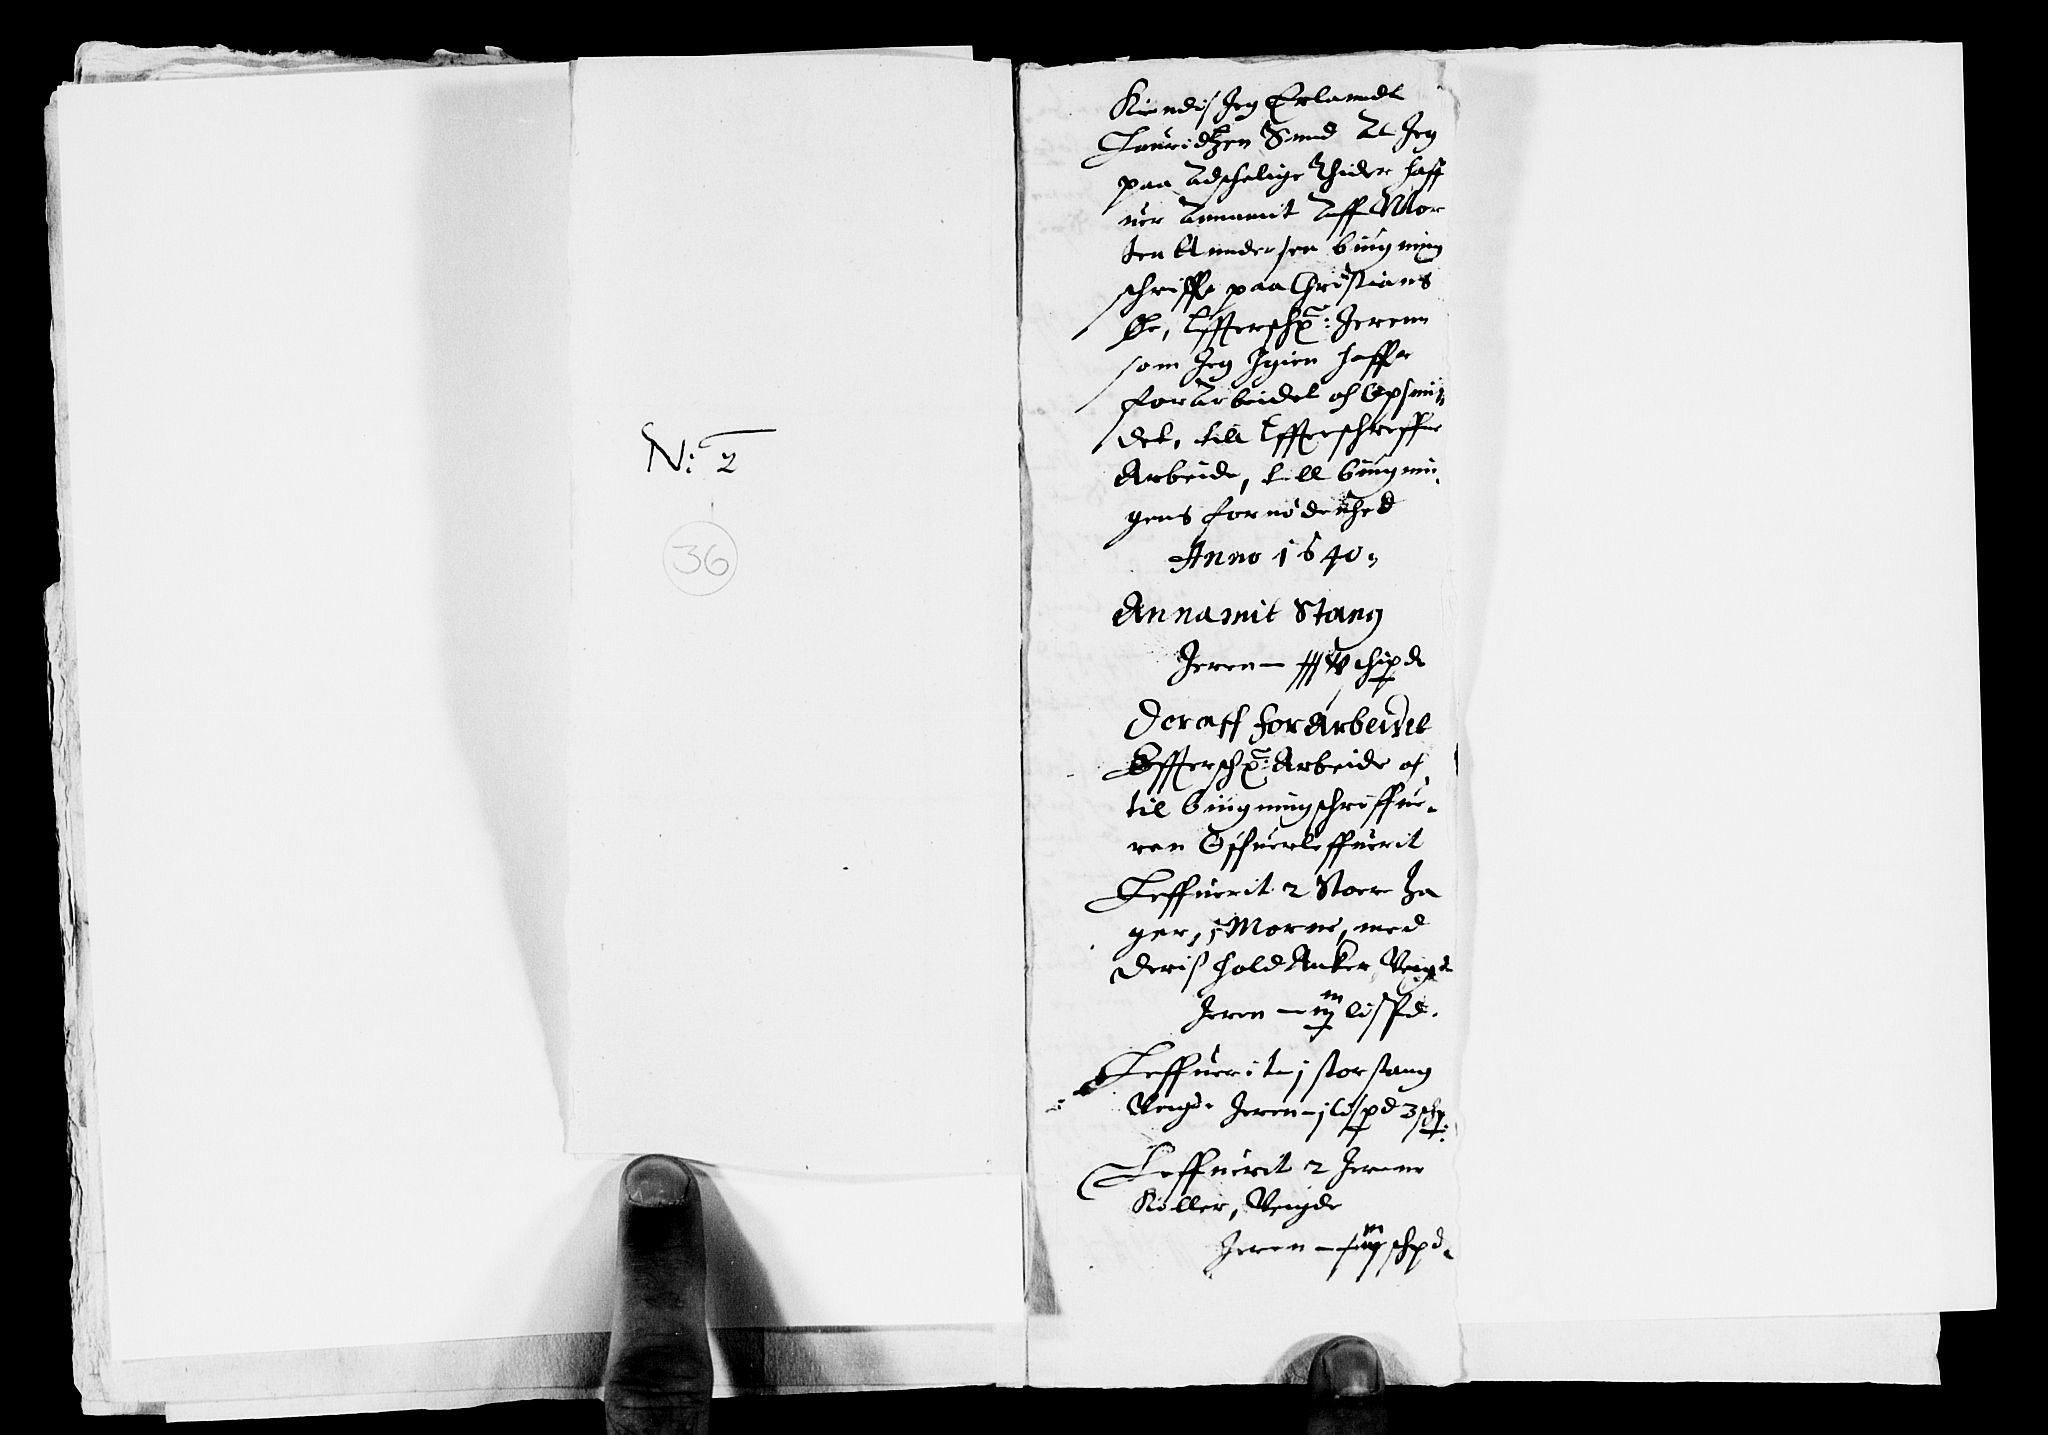 N: 2
36
Kiendis Jeg Erlanndt
Lauridtzen Smed At Jeg
paa Adschelige Thider haff
uer Annamit Aff Mor
ten Andersen bÿugning
schriffr paa Christians
Øe, Effterschr: Jerenn
som Jeg Igien haffr
for Arbeidet och Opsmi
det, till Effterschreffne
Arbeide, till bÿugnin
gens fornødenhed
Anno 1640
Annamit Stang
Jeren — schipd
Deraff forArbeidet
Effterschr: Arbeide och
til bÿugningschriffue
ren Offuerleffuerit
Leffuerit 2 Store Ha
ger, med
deris hold Anker Veigde
Jeren — lispd.
Leffuerit 1 stor stang
Veigde Jeren — 1 lispd 3 schp:
Leffuerit 2 Jerenn
Killer, Veigde
Jeren — schpd.